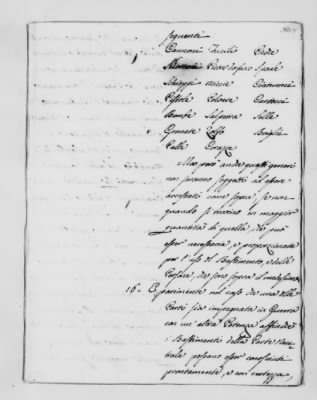 seguenti
Cannoni Fucili Brode
Mortari Pietre da fuoco Spade
Schioppi miccie Cinturoni
Pistole Polvere Cartocci
Bombe Salpetra Selle
Granate Zolfo Briglie
Palle Corazze
Mas però anche questi generi
non saranno soggetti ad essere
arrestati come sopra se non
quando si trovino in maggior
quantità di quella, che può
esser necessaria, e proporzionata
per l'uso del Bastimento, e delle
Persone, che sono sopra il medesimo
16 E parimente nel caso che una delle
Parti sia impegnata in Guerra
con un'altra Potenza affinche
i Bastimenti della Parte Neu-
trale possano esser conosciuti
prontamente, e con certezza,